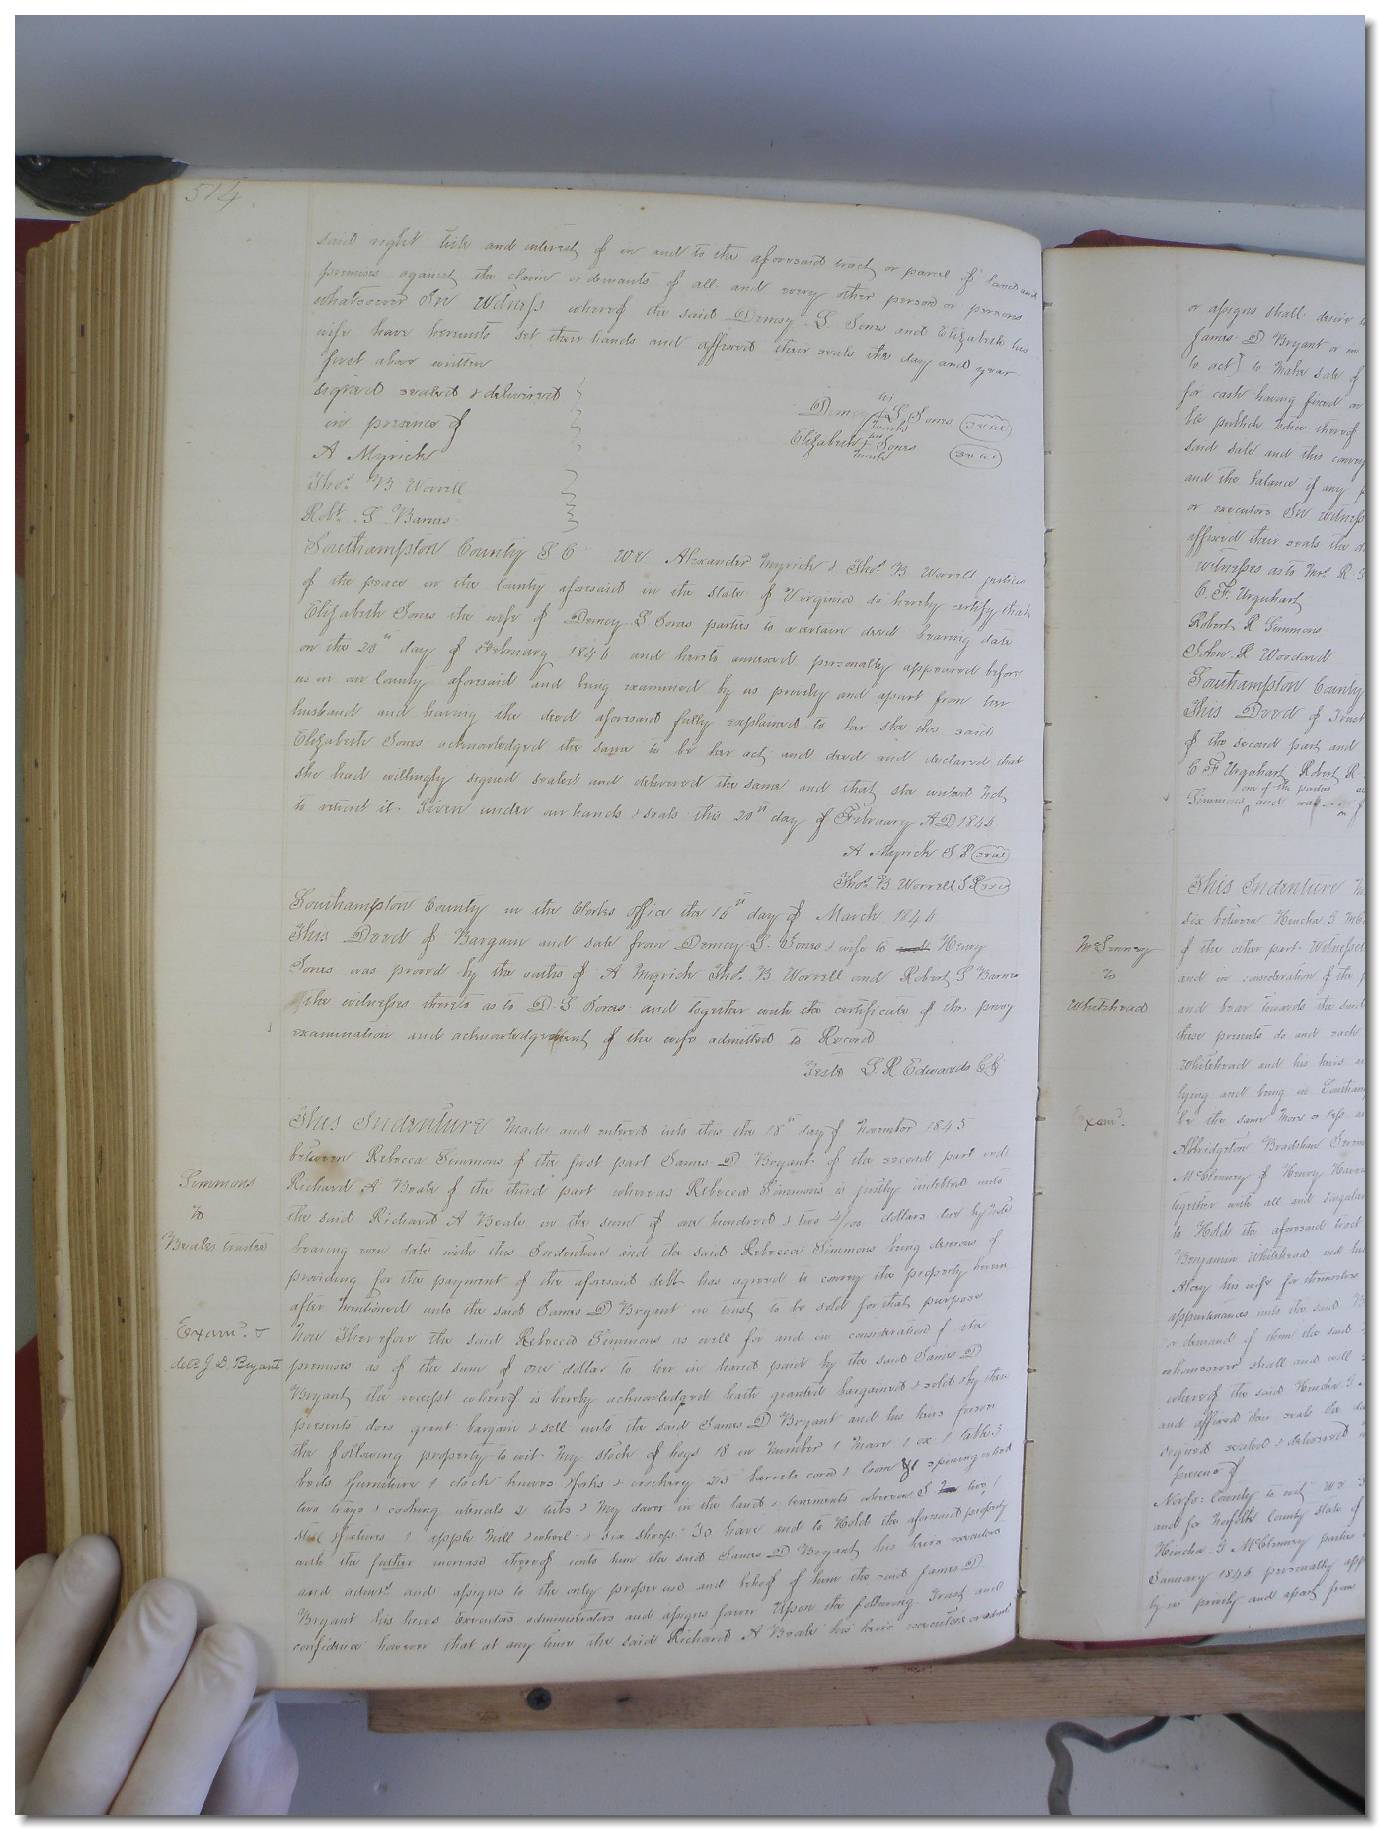 514
said right title and interest of in and to the aforesaid tract or parcel of land and
premises against the claim or demands of all and every other person or persons
whatsoever In Witness whereof the said Demcy S. Jones and Elizabeth his
wife have hereunto set their hands and affixed their seals the day and year
first above written
signed sealed & delivered
in presence of
A Myrick
Thos. B Worrell
Robt. S Barnes
his
Demcy S. Jones seal
mark
her
Elizabeth Jones seal
mark
Southampton County S C We Alexander Myrick & Thos. B Worrell justices
of the peace in the County aforesaid in the State of Virginia do hereby certify that
Elizabeth Jones the wife of Demcy S. Jones parties to a certain deed bearing date
on the 20th day of February 1846 and hereto annexed personally appeared before
us in our County aforesaid and being examined by us privily and apart from her
husband and having the deed aforesaid fully explained to her she the said
Elizabeth Jones acknowledged the same to be her act and deed and declared that
she had willingly signed sealed and delivered the same and that she wished not
to retract it. Given under our hands & seals this 20th day of February AD 1846
A Myrick JP seal
Thos. B Worrell JP seal
Southampton County in the Clerks office the 16th day of March 1846
This Deed of Bargain and sale from Demcy S. Jones & wife to Henry
Jones was proved by the oaths of A Myrick Thos. B. Worrell and Robert S Barnes
the witnesses thereto as to D. S Jones and together with the certificate of the privy
examination and acknowledgment of the wife admitted to Record
Teste L R Edwards CC
Simmons
to
Beales trustee
Examd. &
deld J D. Bryant
This Indenture made and entered into this the 18th day of November 1845
between Rebecca Simmons of the first part James D Bryant of the second part and
Richard A Beale of the third part whereas Rebecca Simmons is justly indebted unto
the said Richard A Beale in the sum of one hundred & two dollars due by note
bearing even date with this Indenture and the said Rebecca Simmons being desirous of
providing for the payment of the aforesaid debt has agreed to convey the property herein
after mentioned unto the said James D Bryant in trust to be sold for that purpose
Now Therefore the said Rebecca Simmons as well for and in consideration of the
premises as of the sum of one dollar to her in hand paid by the said James D
Bryant the receipt whereof is hereby acknowledged hath granted bargained & sold & by these
presents does grant bargain & sell unto the said James D Bryant and his heirs forever
the following property to wit. My stock of hogs 18 in number 1 mare 1 ox 1 table 3
beds & furniture 1 clock knives & forks & crockery 25 barrels corn 1 loom & spinning wheel
two trays & cooking utensils 2 tubs & my dower in the land & tenements whereon I live 1
still & fixtures 1 apple mill & wheel & six sheep. To have and to Hold the aforesaid property
with the further increase thereof unto him the said James D Bryant his heirs executors
and admrs and assigns to the only proper use and behoof of him the said James D.
Bryant his heirs Executors administrators and assigns forever Upon the following Trust and
confidence however that at any time the said Richard A Beale his heirs executors or admrs
or assigns shall desire
James D Bryant or in
to act) to make sale of
for cash having fixed
be publick notice thereof
said sale and this convey
and the balance if any
or executors In witness
affixed their seals the
witnesses as to
C. F. Urquhart
Robert R Simmons
John R Woodard
Southampton County
This Deed of Trust
of the second part and
C F Urquhart Robert R
one of the parties
Simmons and was
McClenney
to
Whitehead
Examd.
This Indenture
six between
of the other part. Witnesseth
and in consideration of the
and bear towards the said
these presents do and each
Whitehead and his heirs
lying and being in Southam
be the same more or less
Abridgeton Bradshaw
McClenny of Henry
together with all and singular
to Hold the aforesaid tract
Benjamin Whitehead and his
his wife for themselves
appurtenances unto the said
or demand of them the said
whomsoever shall and will
whereof the said
and affixed their seals the
signed sealed & delivered
presence of
County to wit We
and for Norfolk County State of
McClenny parties
January 1846 personally app
by us privily and apart from